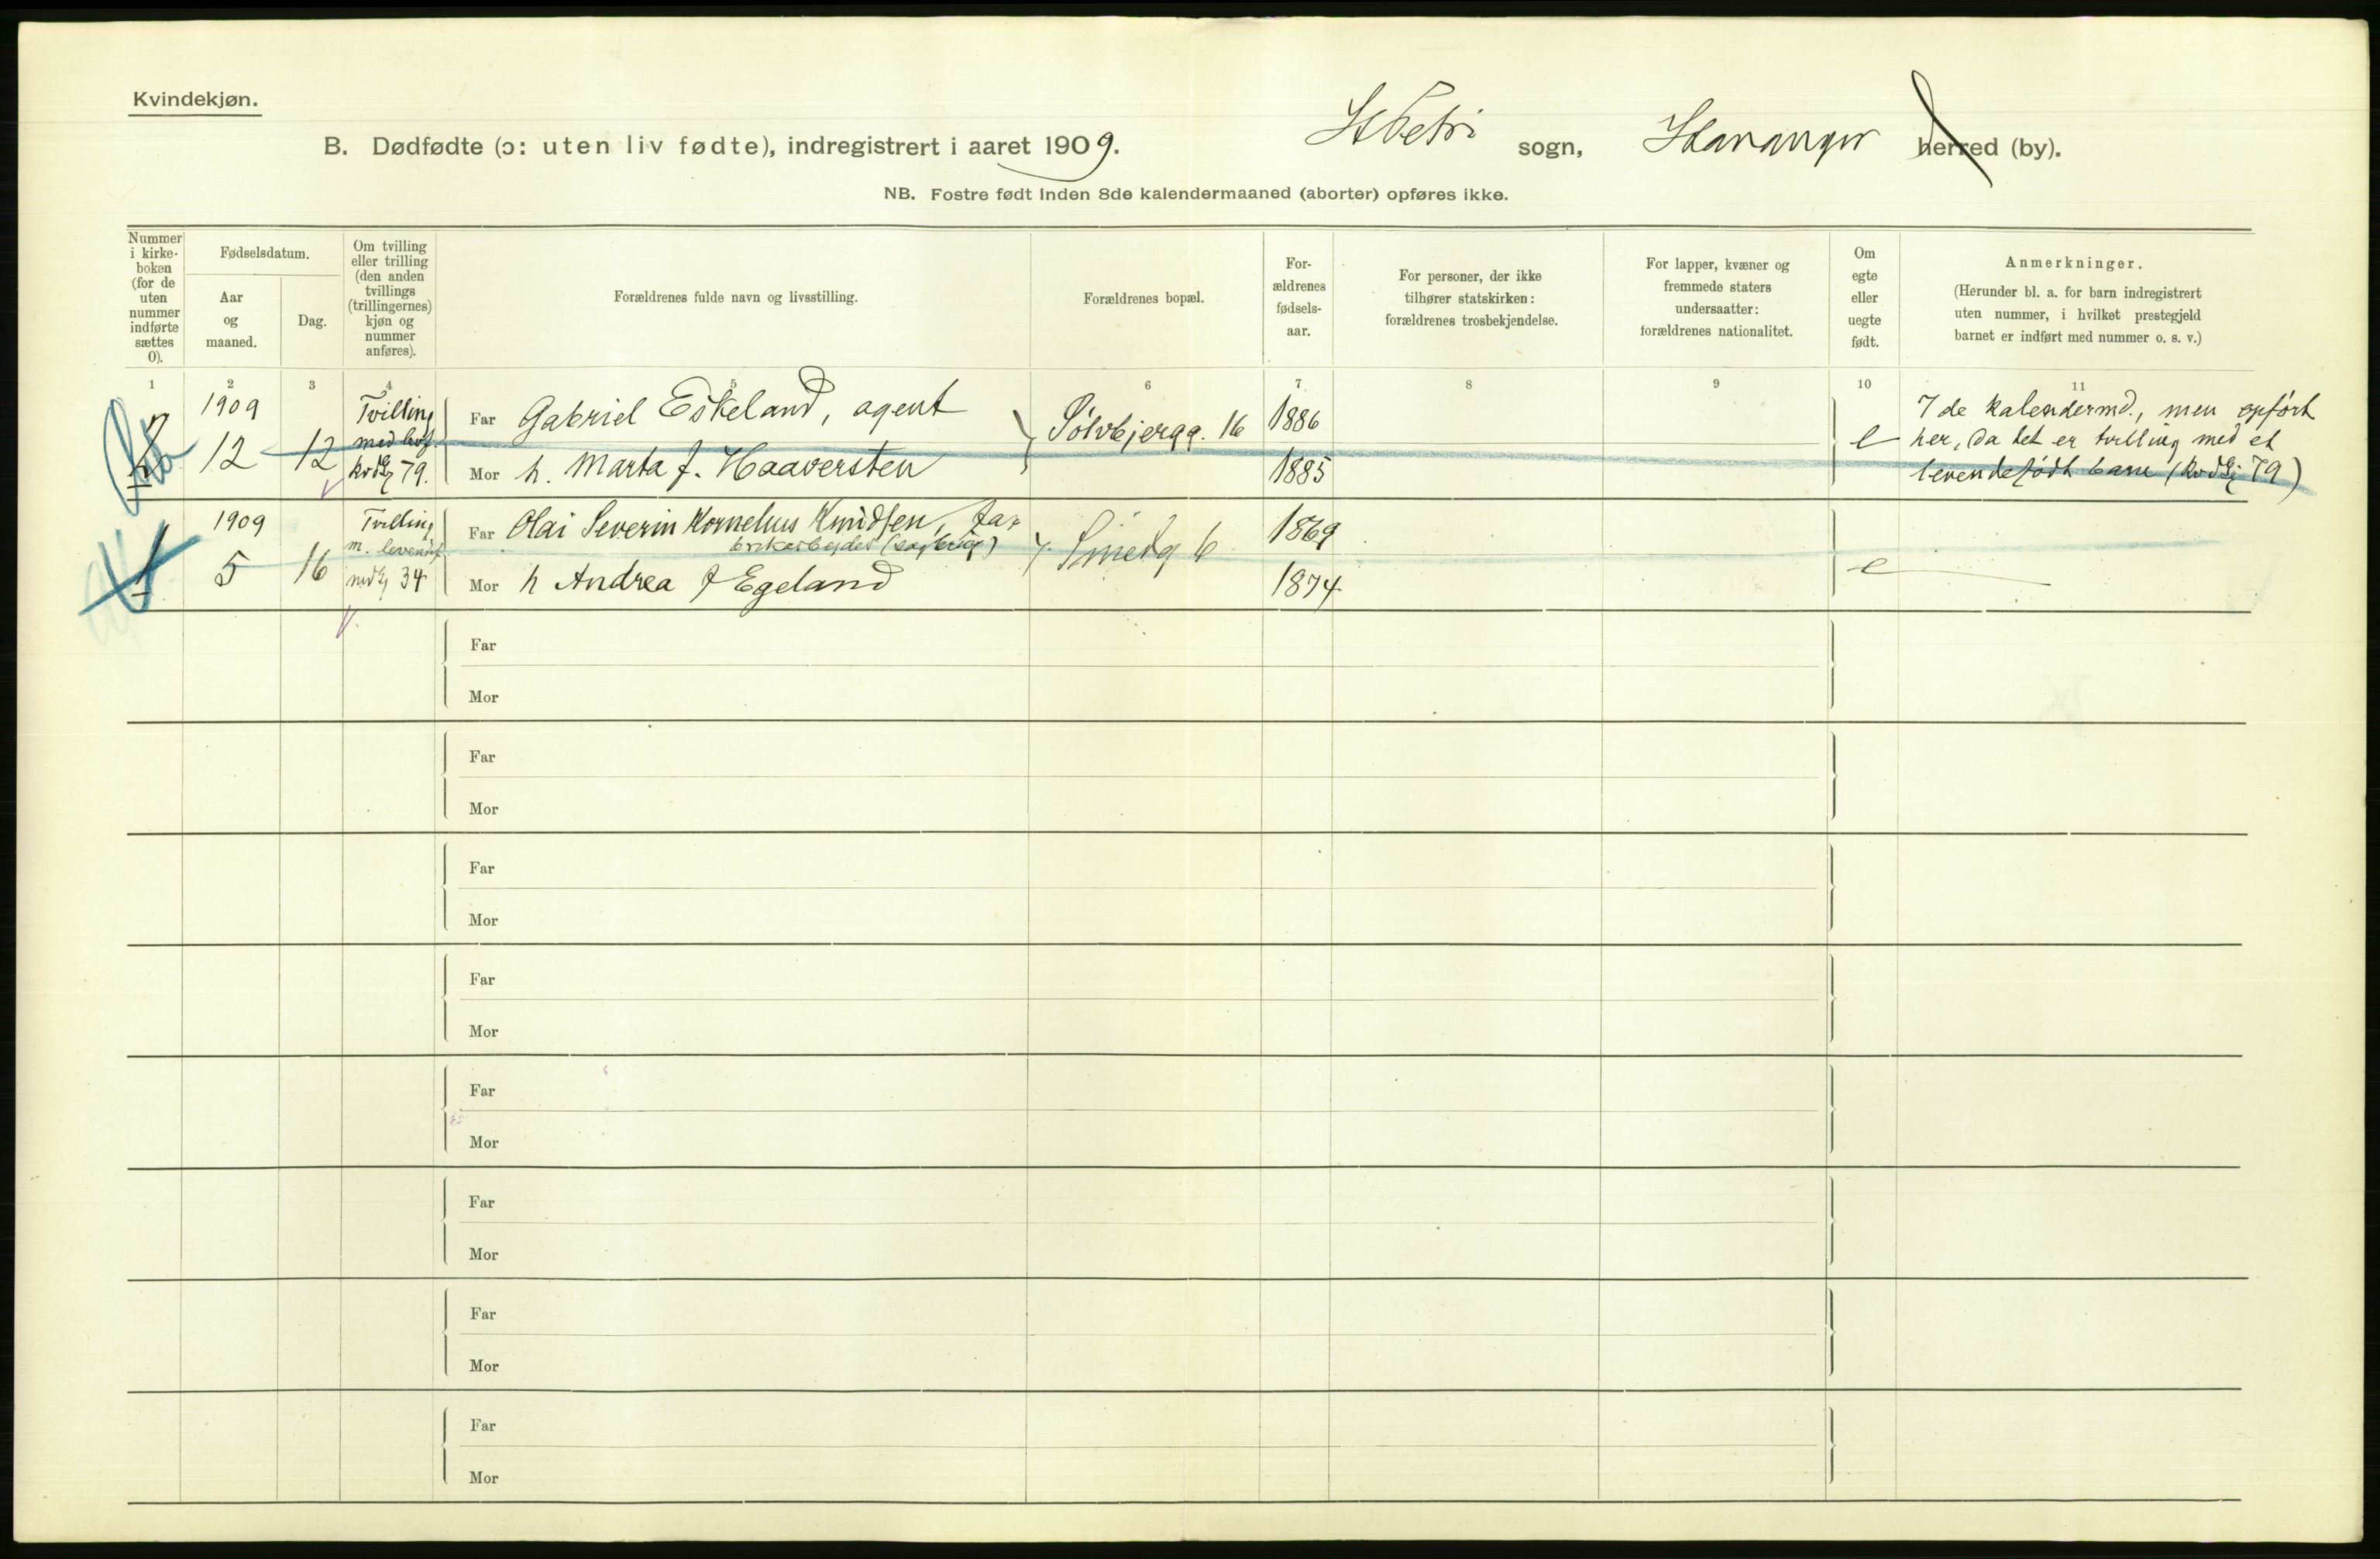 Kvindekjøn.
B. Dødfødte (ɔ: uten liv fødte), indregistrert i aaret 1909. St Petri sogn, Stavanger herred (by).
NB. Fostre født inden 8de kalendermaaned (aborter) opføres ikke.
Nummer
i kirke-
boken
(for de
uten
nummer
indførte
sættes
0).
Fødselsdatum.
Aar
og
maaned.
Dag.
Om tvilling
eller trilling
(den anden
tvillings
(trillingernes)
kjøn og
nummer
anføres).
Forældrenes fulde navn og livsstilling.
Forældrenes bopæl.
For-
ældrenes
fødsels-
aar.
For personer, der ikke
tilhører statskirken:
forældrenes trosbekjendelse.
For lapper, kvæner og
fremmede staters
undersaatter:
forældrenes nationalitet.
Om
egte
eller
uegte
født.
Anmerkninger.
(Herunder bl. a. for barn indregistrert
uten nummer, i hvilket prestegjeld
barnet er indført med nummer o. s. v.)
1 2 3 4 5 6 7 8 9 10 11
2
1909
12
12
Tvilling
med levf.
kvdkj 79.
Far Gabriel Eskeland, agent
Mor h. Marta f. Haaversten
Sølvbjergg. 16
1886
1885
e
7de kalendermd., men opført
her, da det er tvilling med et
levendefødt barn (kvdkj 79)
1
1909
5
16
Tvilling
m. levendf.
mdkj 34
Far Olai Severin Kornelius Knudsen, fa-
brikarbejder
Mor h Andrea f Egeland
Smedg 6
1869
1874
e
Far
Mor
Far
Mor
Far
Mor
Far
Mor
Far
Mor
Far
Mor
Far
Mor
Far
Mor